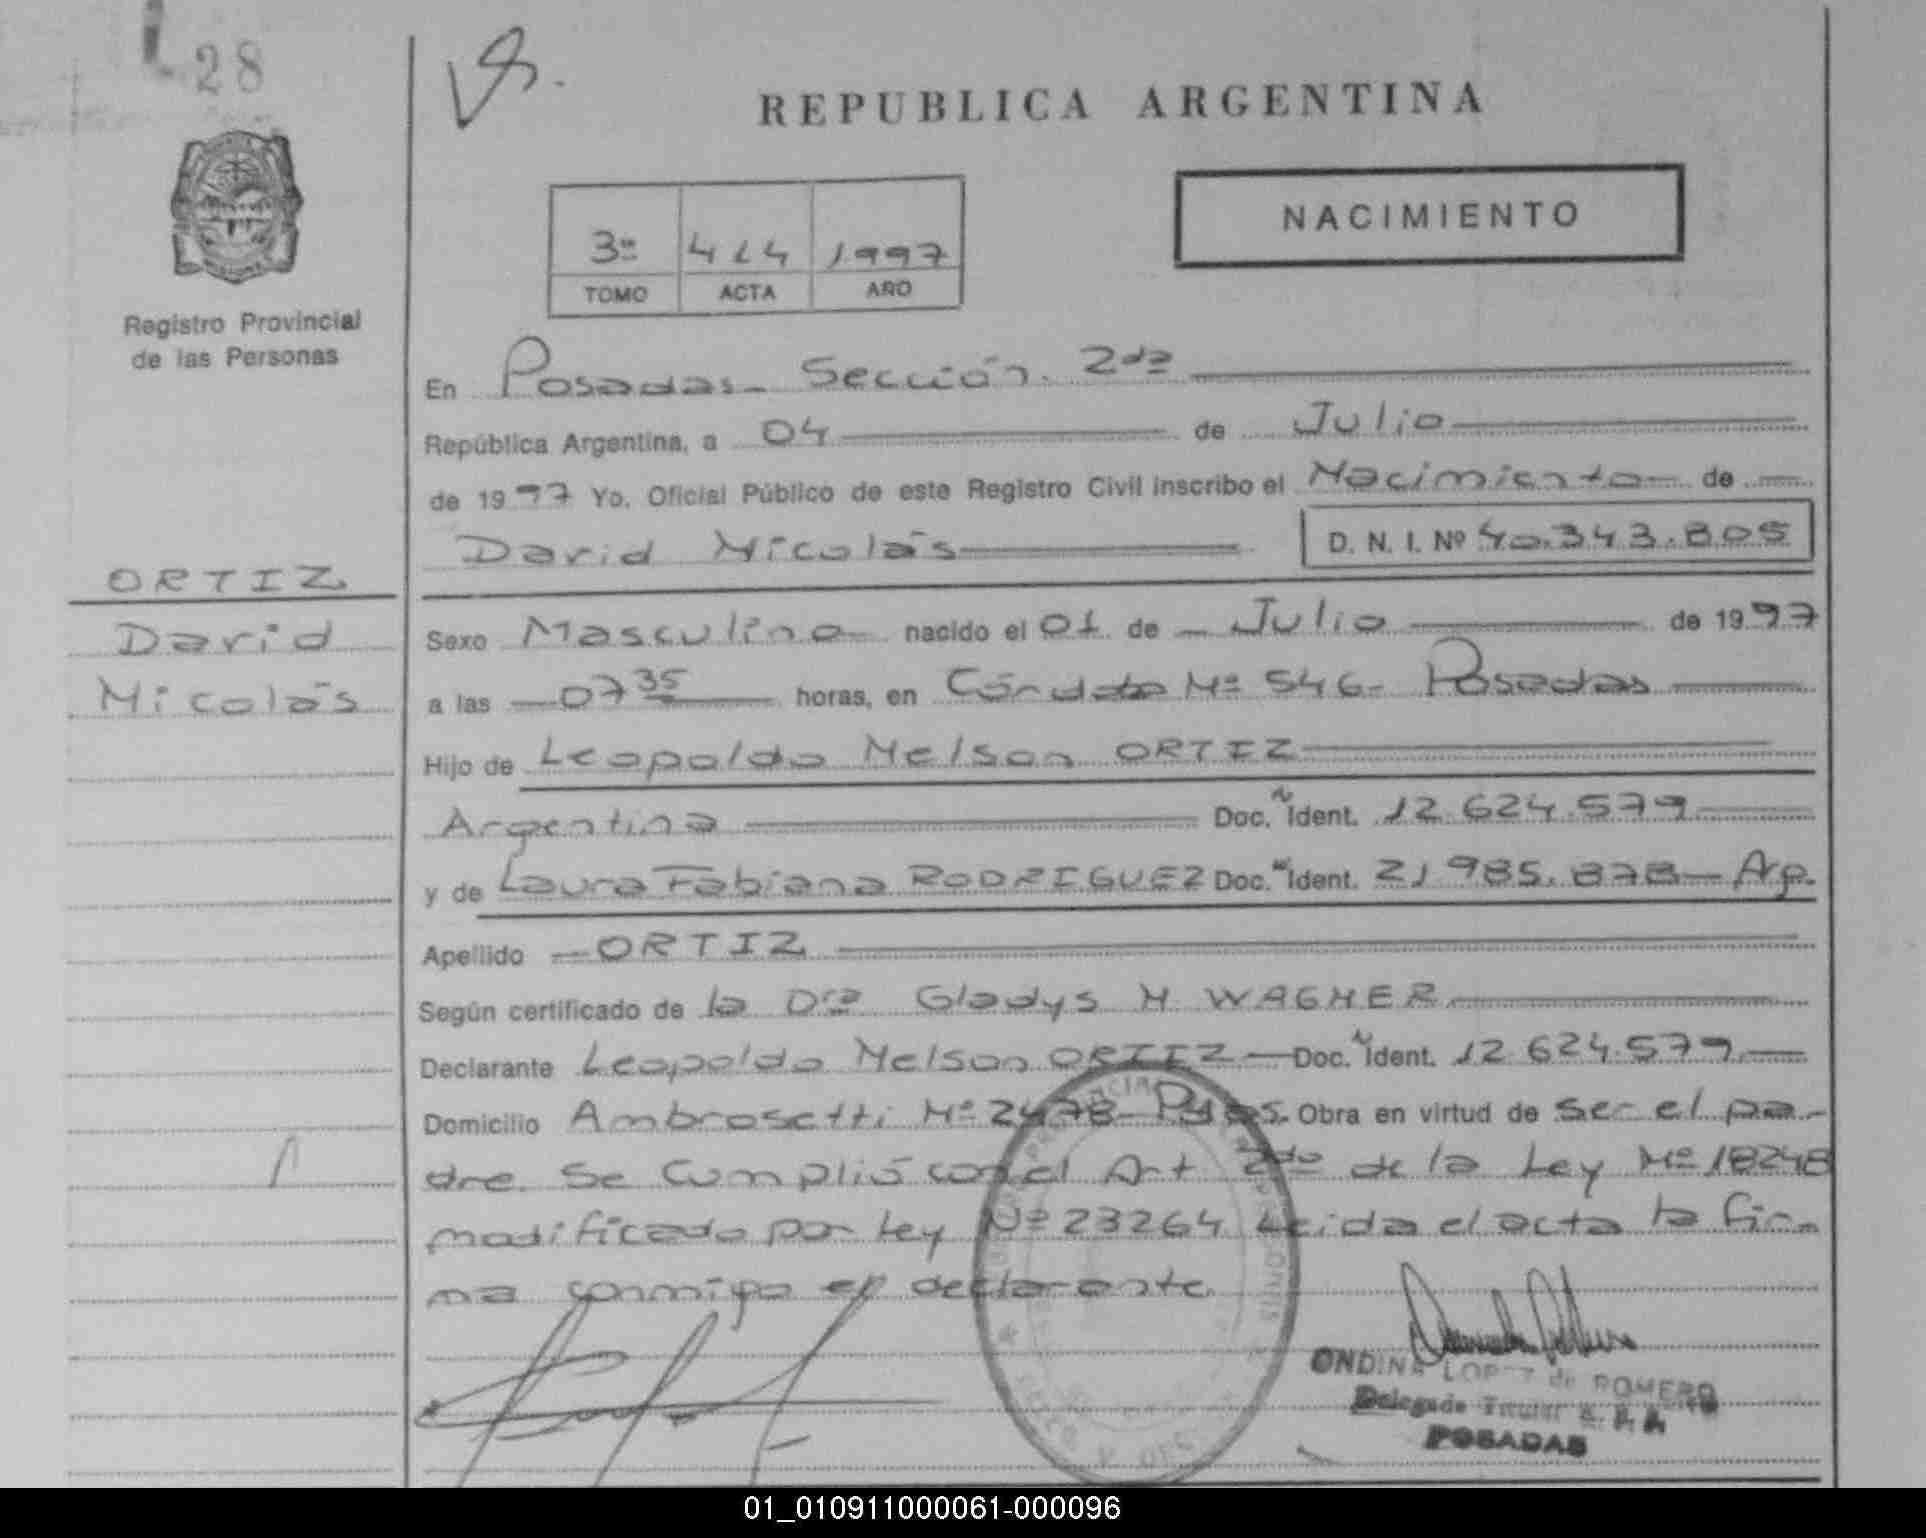 28
REPUBLICA ARGENTINA
NACIMIENTO
3º 414 1997
TOMO ACTA AÑO
Registro Provincial
de las Personas
En Posadas - Sección 2da
República Argentina, a 04 de Julio
de 1997 Yo, Oficial Público de este Registro Civil inscribo el Nacimiento de
David Nicolás D. N. I. Nº 40.343.805
ORTIZ
David
Nicolás
Sexo Masculino nacido el 01 de Julio de 1997
a las 07 35 horas, en Córdoba Nº 546 - Posadas
Hijo de Leopoldo Nelson ORTIZ
Argentina Doc. Ident. 12.624.579
y de Laura Fabiana RODRIGUEZ Doc. Ident. 21.985.878 - Arg.
Apellido ORTIZ
Según certificado de la Dra Gladys N. WAGNER
Declarante Leopoldo Nelson ORTIZ - Doc. Ident. 12.624.579
Domicilio Ambrosetti Nº 2478 - Pdas. Obra en virtud de ser el pa-
dre. Se cumplió con el Art. 2do de la Ley Nº 18248
modificado por Ley Nº 23264 Leida el acta la fir-
ma conmigo el declarante
ONDINA LOPEZ de ROMERO
Delegada Titular R. P. P.
POSADAS
01_010911000061-000096